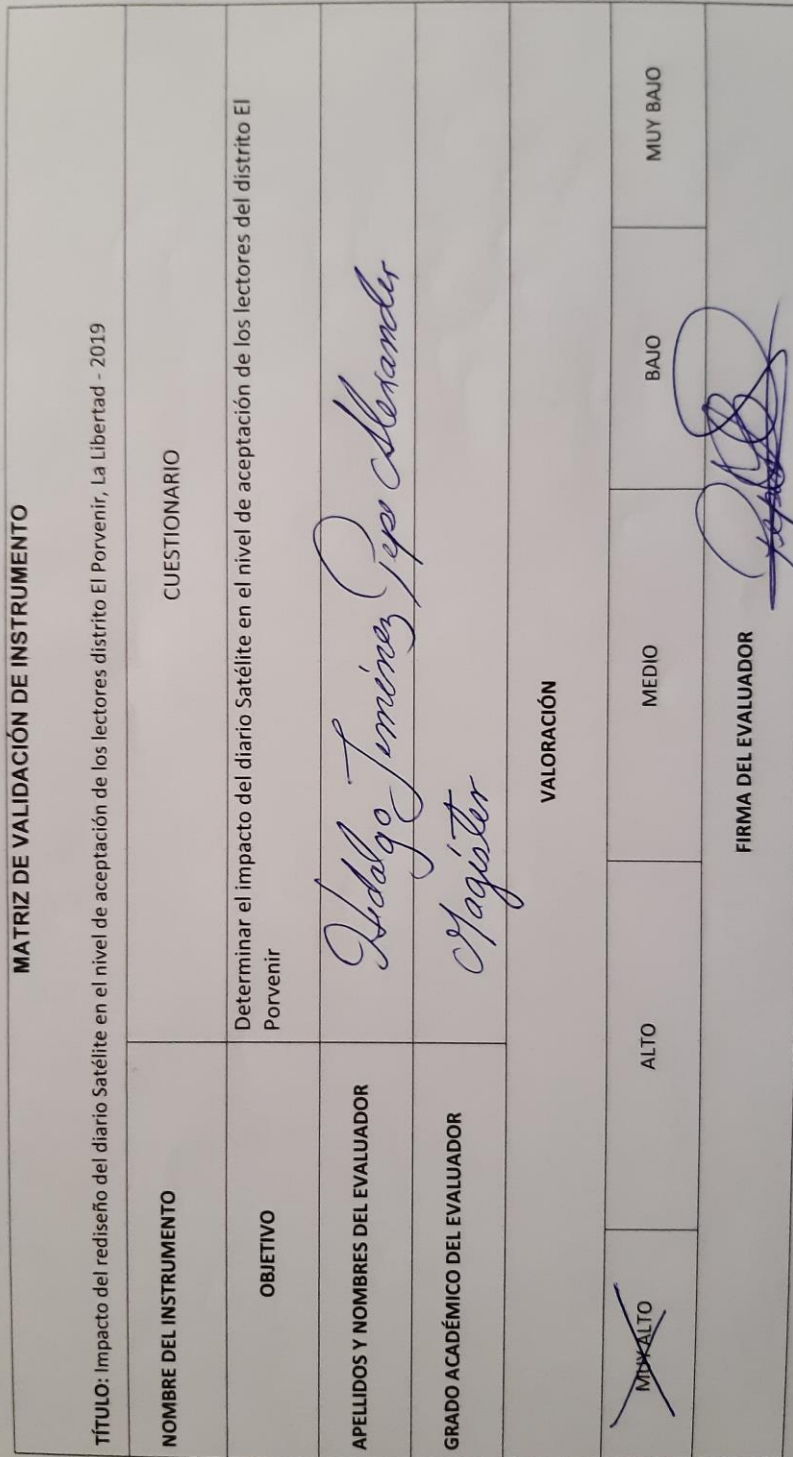 MATRIZ DE VALIDACIÓN DE INSTRUMENTO
TÍTULO: Impacto del rediseño del diario Satélite en el nivel de aceptación de los lectores distrito El Porvenir, La Libertad - 2019
NOMBRE DEL INSTRUMENTO
CUESTIONARIO
OBJETIVO
Determinar el impacto del diario Satélite en el nivel de aceptación de los lectores del distrito El
Porvenir
APELLIDOS Y NOMBRES DEL EVALUADOR
Hidalgo Jiménez Pepe Alexander
GRADO ACADÉMICO DEL EVALUADOR
Magíster
VALORACIÓN
MUY ALTO
ALTO
MEDIO
BAJO
MUY BAJO
FIRMA DEL EVALUADOR